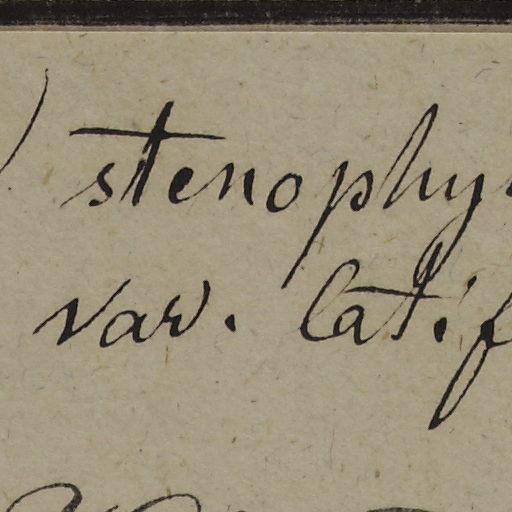 stenophy
var. latif